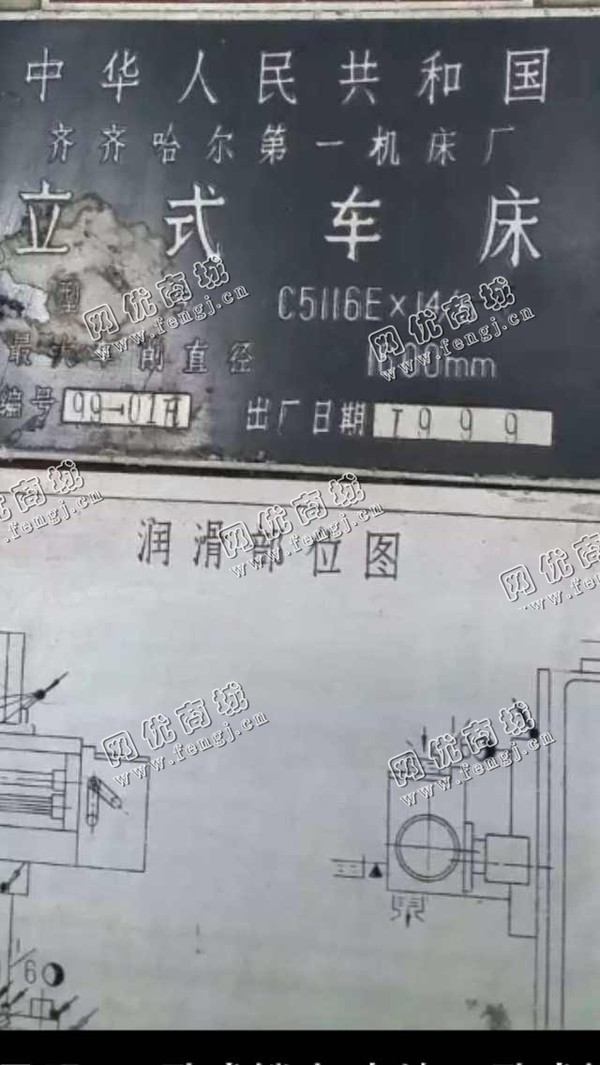 中华人民共和国
齐齐哈尔第一机床厂
立式车床
型 C5116E×14
最大车削直径 1600mm
编号 99-01 出厂日期 1999
润滑部位图
网优商城
www.fengj.cn
网优商城
www.fengj.cn
网优商城
www.fengj.cn
网优商城
www.fengj.cn
网优商城
www.fengj.cn
网优商城
www.fengj.cn
网优商城
www.fengj.cn
6